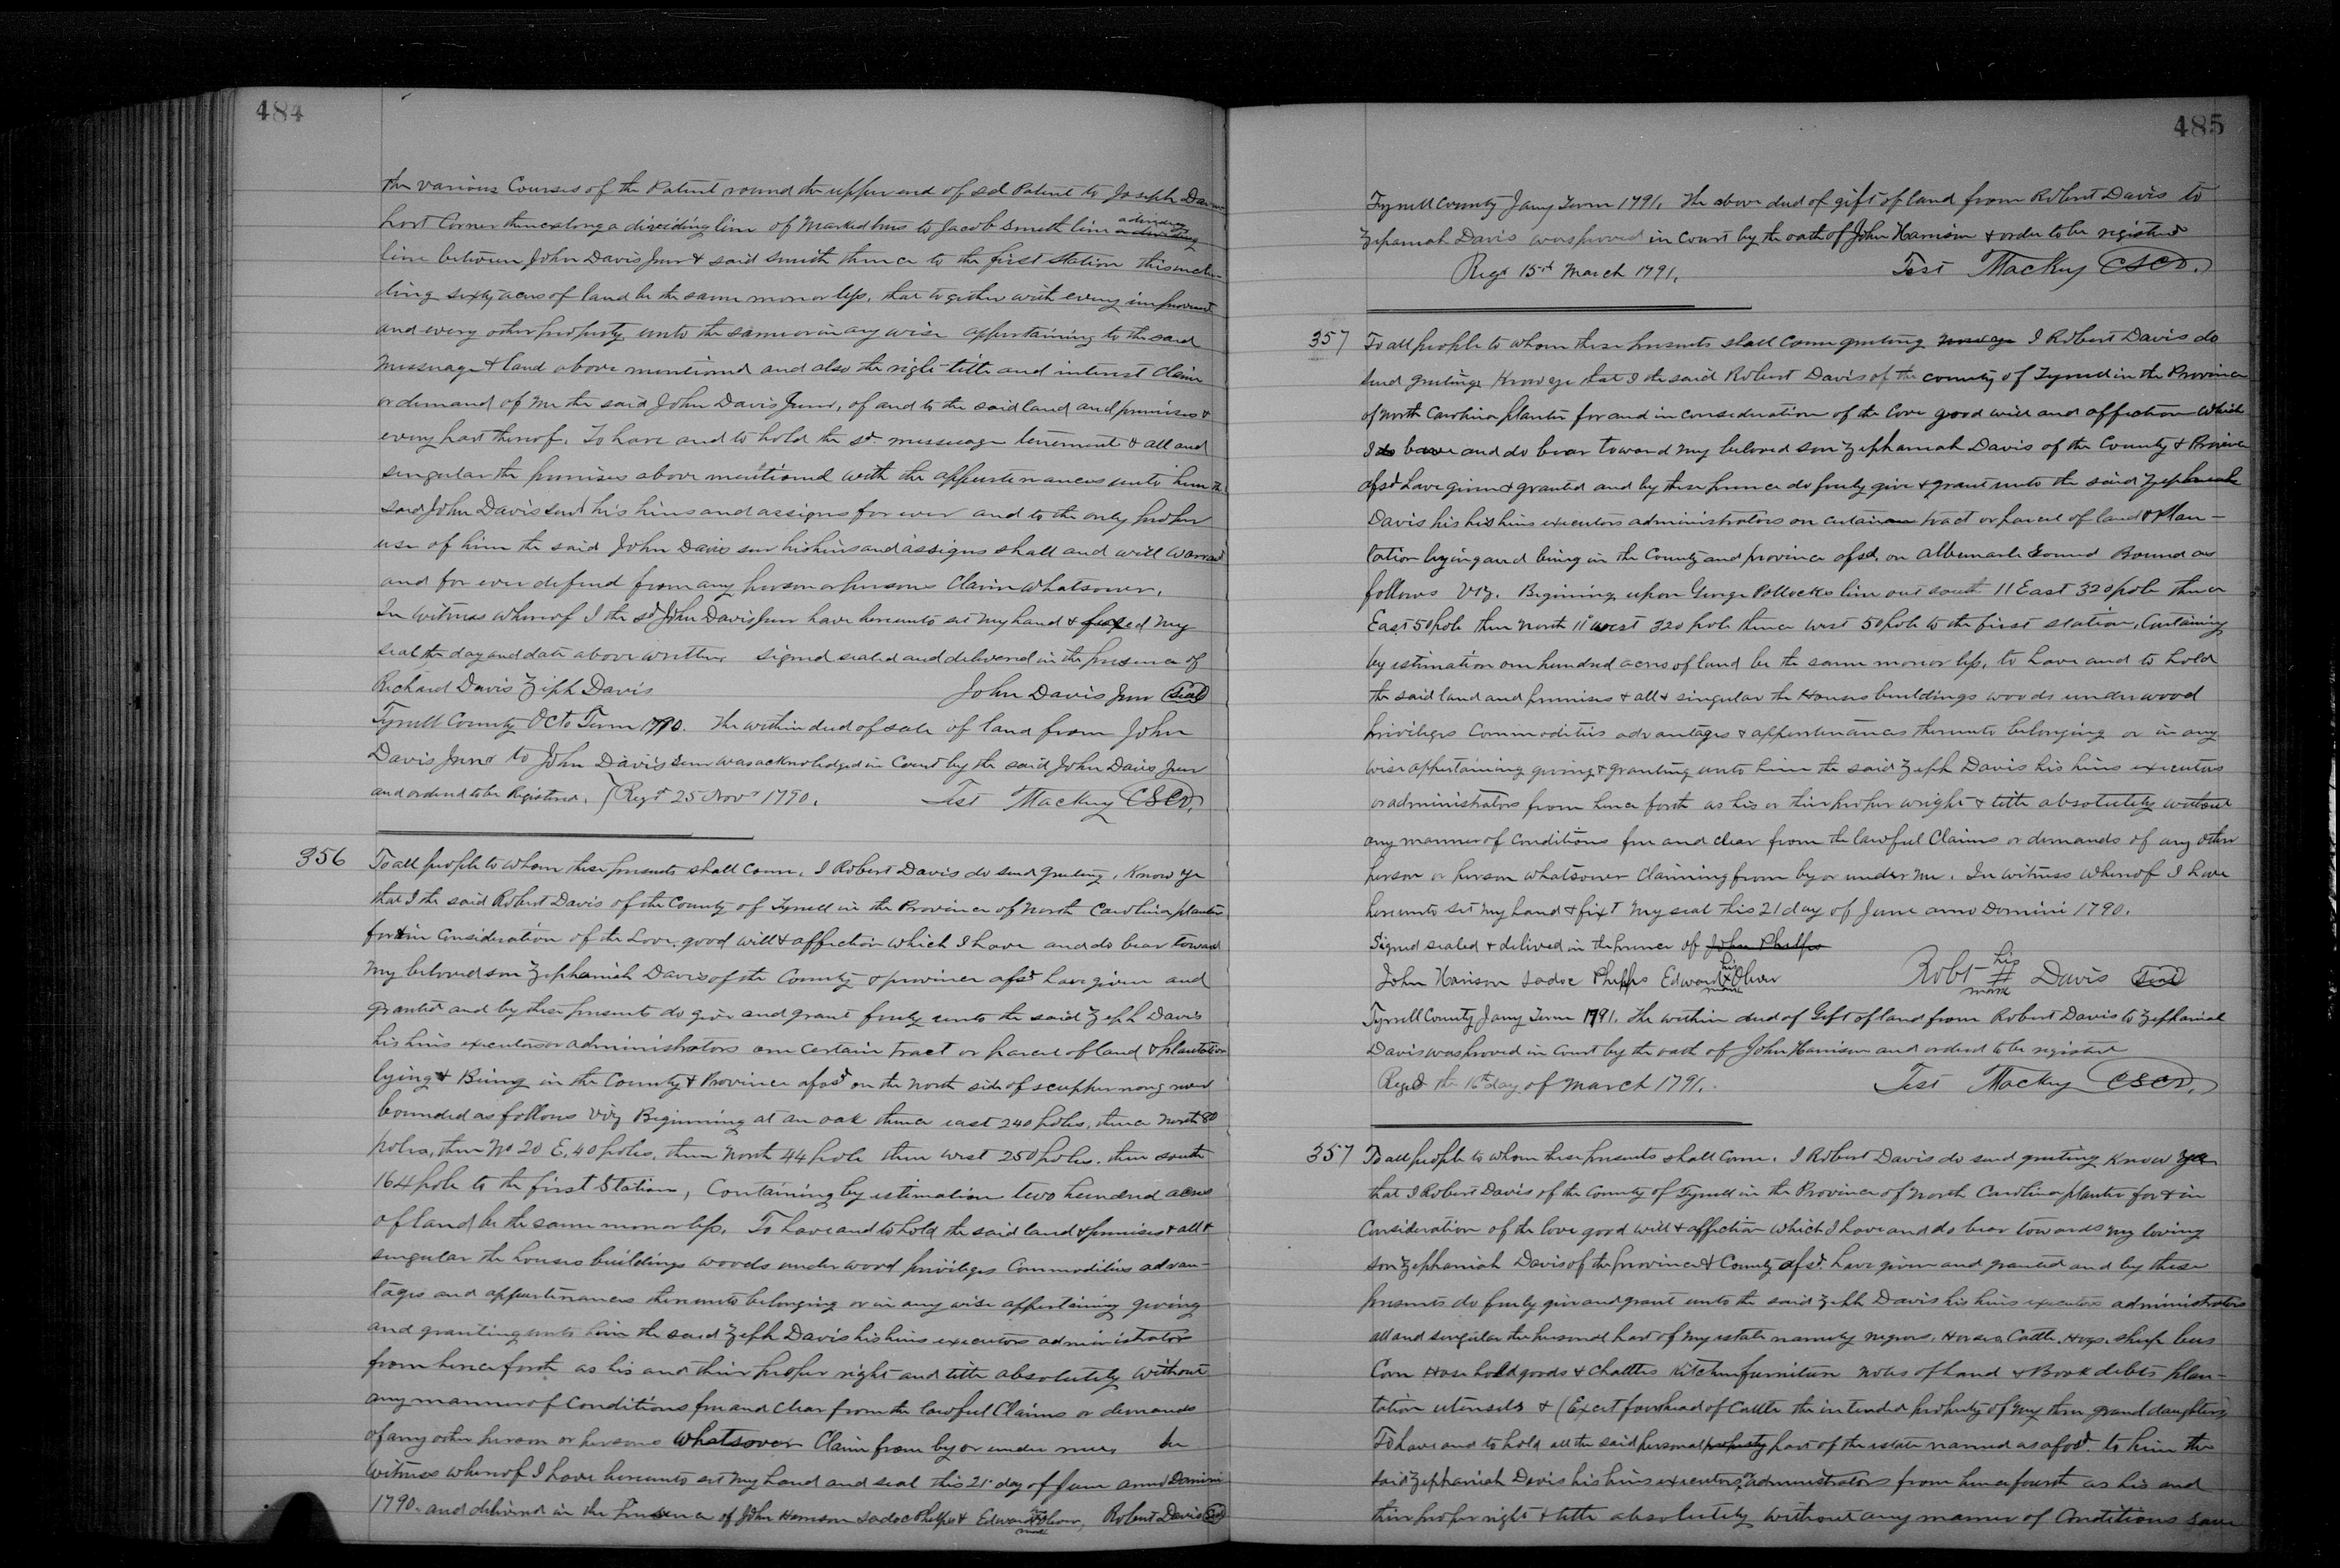 484
the various Courses of the Patent round the upper end of sd Patent to Joseph Daven
port Corner thence along a dividing line of Marked trees to Jacob Smith line a dividing
line between John Davis Junr & said Smith thence to the first station this inclu-
ding sixty acres of land be the same more or less, that together with every improvement
and every other property unto the same or in any wise appertaining to the said
Messuage & land above mentioned and also the right title and interest Claim
or demand of me the said John Davis Junr, of and to the said land and premises &
every part thereof. To have and to hold the sd messuage tenement & all and
singular the premises above mentioned with the appurtenances unto him the
said John Davis senr his hiers and assigns for ever and to the only proper
use of him the said John Davis senr his hiers and assigns shall and will warrant
and for ever defend from any person or persons Claim whatsoever.
In witness whereof I the sd John Davis Junr have hereunto set my hand & fixed my
seal the day and date above written signed sealed and delivered in the presence of
Richard Davis Ziph Davis John Davis Junr Seal
Tyrrell County Octo Term 1790. The within deed of sale of land from John
Davis Junr to John Davis Senr was acknowledged in Court by the said John Davis Junr
and ordered to be Registered. Regd 25 Novr 1790. Test Mackey CSCD.
356 To all people to whom these presents shall Come, I Robert Davis do send greeting, Know ye
that I the said Robert Davis of the County of Tyrrell in the Province of North Carolina planter
for & in Consideration of the Love good will & affection which I have and do bear toward
My beloved son Zephaniah Davis of the County & province afsd have given and
granted and by these presents do give and grant freely unto the said Zeph Davis
his hiers executors or administrators one certain tract or parcel of land & plantation
lying & Being in the County & Province afosd on the North side of scuppernong river
bounded as follows Viz Beginning at an oak thence east 240 poles, thence North 80
poles, then No 20 E. 40 poles, then North 44 pole then west 250 poles. then south
164 pole to the first Station, Containing by estimation two hundred acres
of land be the same more or less. To have and to hold the said land & premises & all &
singular the houses buildings woods under wood privileges Commodities advan-
tages and appurtenances thereunto belonging or in any wise appertaining giving
and granting unto him the said Zeph Davis his hiers executors administrators
from hence forth as his and their proper right and title absolutely without
any manner of Conditions free and Clear from the lawful Claims or demands
of any other person or persons whatsoever Claim from by or under me, In
witness whereof I have hereunto set my hand and seal this 21 day of June anno Domini
1790. and delivered in the Presence of John Harrison Sadoc Phelps & Edward his mark Oliver, Robert Davis Seal
485
Tyrrell County Jany Term 1791. The above deed of gift of land from Robert Davis to
Zephaniah Davis was proved in Court by the oath of John Harrison & order to be registered
Regd 15th March 1791. Test Mackey CSCD.
357 To all people to whom these presents shall Come greeting I Robert Davis do
send greetings Know ye that I the said Robert Davis of the county of Tyrrell in the Province
of North Carolina planter for and in consideration of the Love good will and affection which
I do bare and do bear toward my beloved son Zephaniah Davis of the County & Province
afsd have given & granted and by these presence do freely give & grant unto the said Zephaniah
Davis his his hiers executors administrators on certain tract or parcel of land & Plan-
tation lying and being in the County and province afsd. on Albemarle Sound Bound as
follows Viz. Begining upon George Pollocks line out south 11 East 320 pole thence
East 50 pole then North 11° West 320 pole thence west 50 pole to the first station, Containing
by estimation one hundred acres of land be the same more or less, to have and to hold
the said land and premises & all & singular the Houses buildings woods underwood
priviliges Commodities advantages & appurtenances thereunto belonging or in any
wise appertaining giving & granting unto him the said Zeph Davis his hiers executors
or administrators from hence forth as his or their proper wright & title absolutely without
any manner of Conditions free and clear from the lawful Claims or demands of any other
person or person whatsoever Claiming from by or under me. In witness whereof I have
hereunto set my hand & fixt my seal this 21 day of June anno Domini 1790.
Signed sealed & delivered in the presence of John Phelps
John Harison Sadoc Phelps Edward his x mark Oliver Robt his # mark Davis Seal
Tyrrell County Jany Term 1791. The within deed of Gift of land from Robert Davis to Zephaniah
Davis was proved in Court by the oath of John Harrison and ordered to be registered
Reged the 16th day of March 1791. Test Mackey CSCD.
357 To all people to whom these presents shall Come. I Robert Davis do send greeting Know ye
that I Robert Davis of the County of Tyrrell in the Province of North Carolina planter for & in
Consideration of the love good will & affection which I have and do bear towards my loving
son Zephaniah Davis of the province & County afsd. have given and granted and by these
presents do freely give and grant unto the said Zeph Davis his hiers executors administrators
all and singular the personal part of my estate namely negroes, Horses Cattle, Hogs, sheep bees
Corn House hold goods & Chattles Kitchen furniture Notes of hand & Book debts plan-
tation utensels & (Excet four head of Cattle the intended property of my three grand daughters)
To have and to hold all the said personal property part of the estate named as afosd. to him the
said Zephaniah Davis his hiers executors, administrators from hence fourth as his and
their proper right & title absolutely without any manner of Conditions save